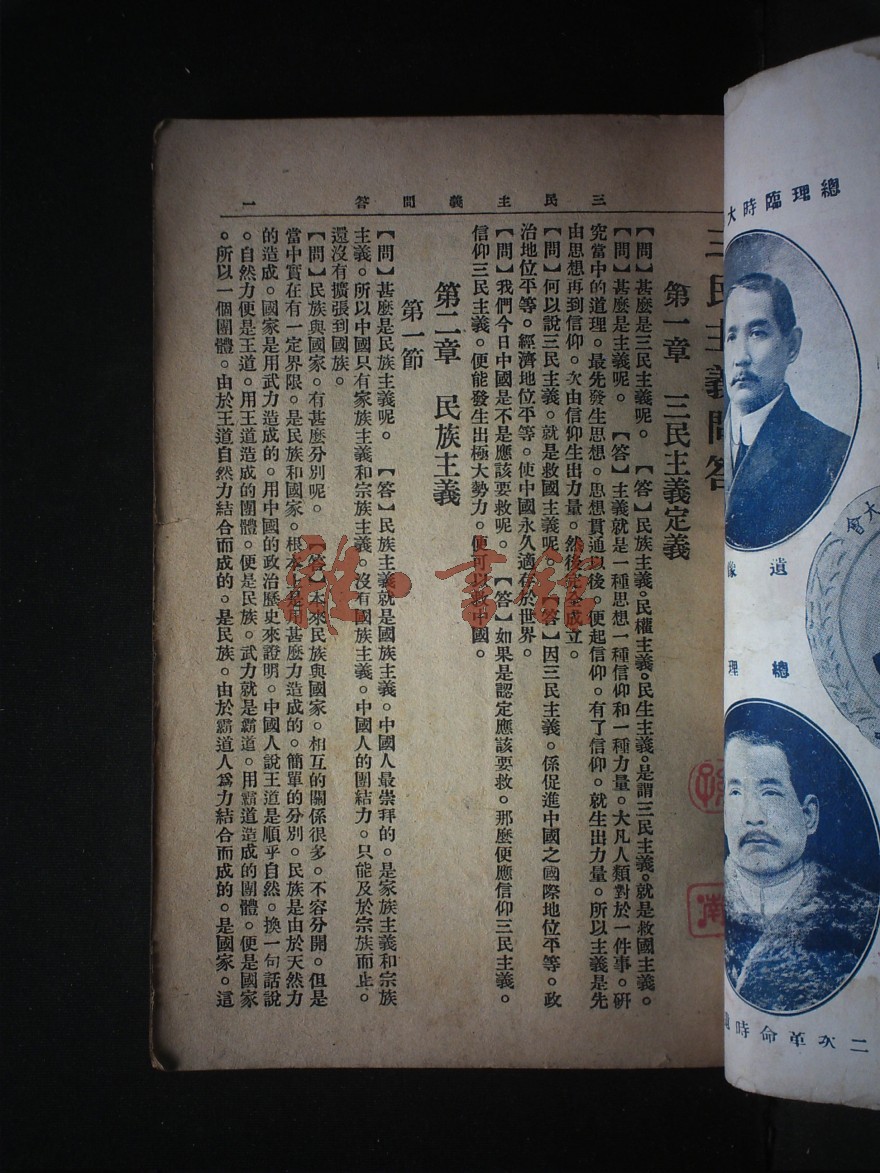 三民主義問答
一
三民主義問答
第一章　三民主義定義
【問】甚麼是三民主義呢。　【答】民族主義。民權主義。民生主義。是謂三民主義。就是救國主義。
【問】甚麼是主義呢。　【答】主義就是一種思想一種信仰和一種力量。大凡人類對於一件事。硏
究當中的道理。最先發生思想。思想貫通以後。便起信仰。有了信仰。就生出力量。所以主義是先
由思想再到信仰。次由信仰生出力量。然後完全成立。
【問】何以說三民主義。就是救國主義呢。【答】因三民主義。係促進中國之國際地位平等。政
治地位平等。經濟地位平等。使中國永久適存於世界。
【問】我們今日中國是不是應該要救呢。　【答】如果是認定應該要救。那麼便應信仰三民主義。
信仰三民主義。便能發生出極大勢力。便可以救中國。
第二章　民族主義
第一節
【問】甚麼是民族主義呢。　【答】民族主義就是國族主義。中國人最崇拜的。是家族主義和宗族
主義。所以中國只有家族主義和宗族主義。沒有國族主義。中國人的團結力。只能及於宗族而止。
還沒有擴張到國族。
【問】民族與國家。有甚麼分別呢。　【答】本來民族與國家。相互的關係很多。不容分開。但是
當中實在有一定界限。是民族和國家。根本上是用甚麼力造成的。簡單的分別。民族是由於天然力
的造成。國家是用武力造成的。用中國的政治歷史來證明。中國人說王道是順乎自然。換一句話說
。自然力便是王道。用王道造成的團體。便是民族。武力就是霸道。用霸道造成的團體。便是國家
。所以一個團體。由於王道自然力結合而成的。是民族。由於霸道人爲力結合而成的。是國家。這
總理臨時大
遺像
大會
總理
二次革命時